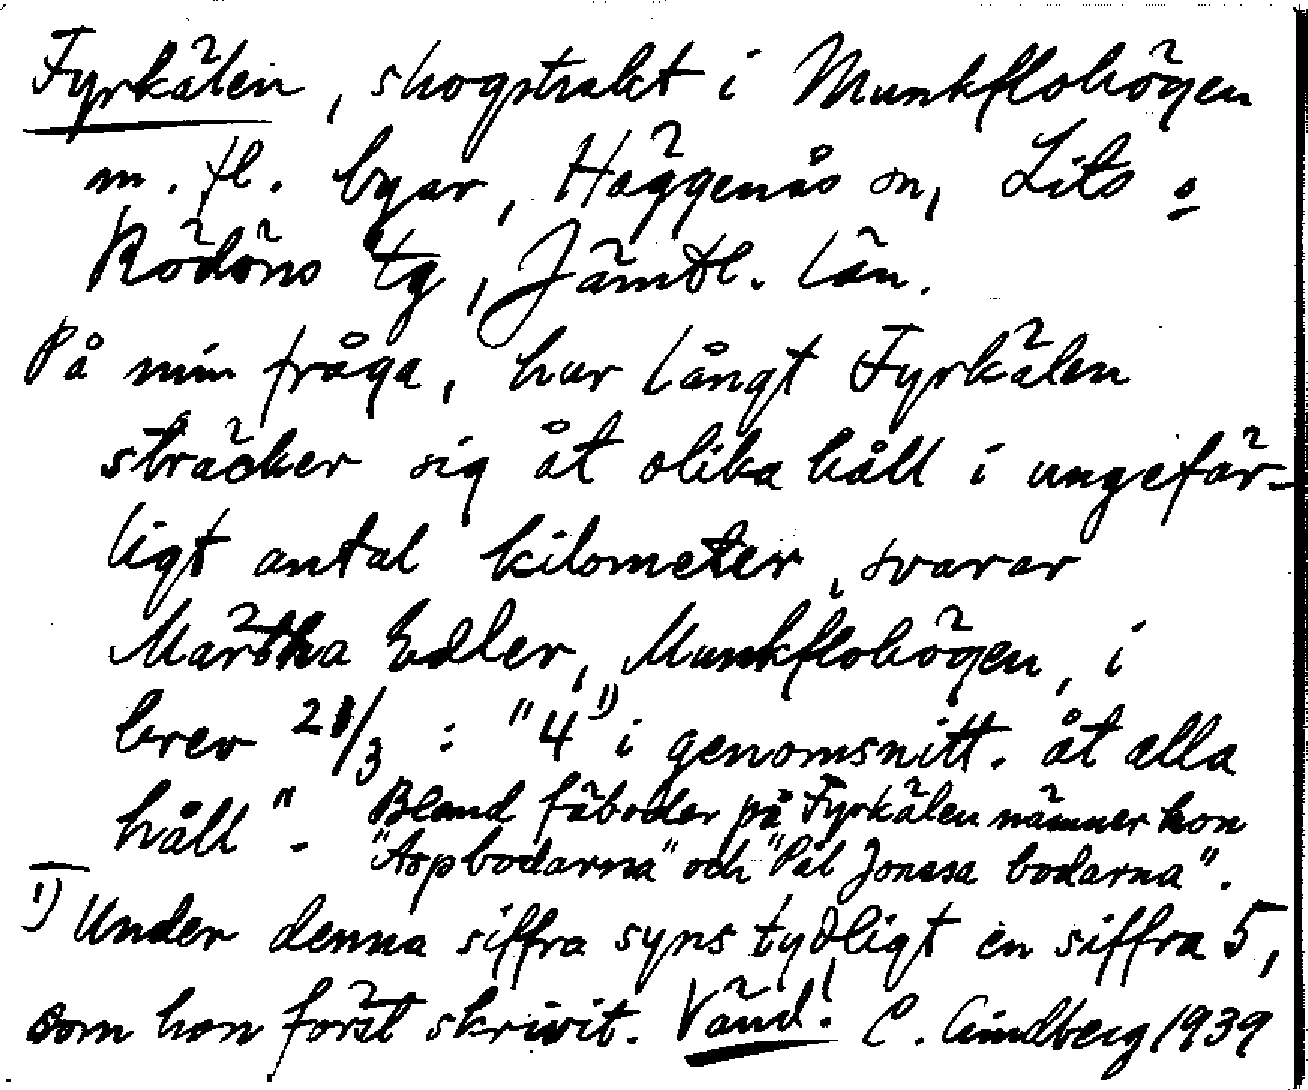 Fyrkälen, skogstrakt i Munkflohögen
m. fl. byar, Häggenås sn, Lits o
Rödöns tg, Jämtl. län.
På min fråga, hur långt Fyrkälen
sträcker sig åt olika håll i ungefär-
ligt antal kilometer, svarar
Märtha Edler, Munkflohögen, i
brev 21/3 : "4 1) i genomsnitt. åt alla
håll". Bland fäbodar på Fyrkälen nämner hon
"Aspbodarna" och "Pål Jonsa bodarna".
1) Under denna siffra syns tydligt en siffra 5,
som hon först skrivit. Vänd! C. Lindberg 1939